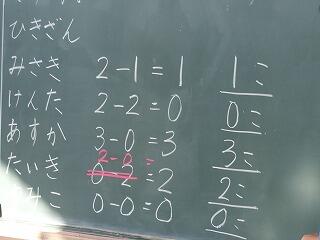 ひきざん
みさき 2-1=1 1こ
けんた 2-2=0 0こ
あすか 3-0=3 3こ
2-0=
たいき 0-2=2 2こ
みこ 0-0=0 0こ